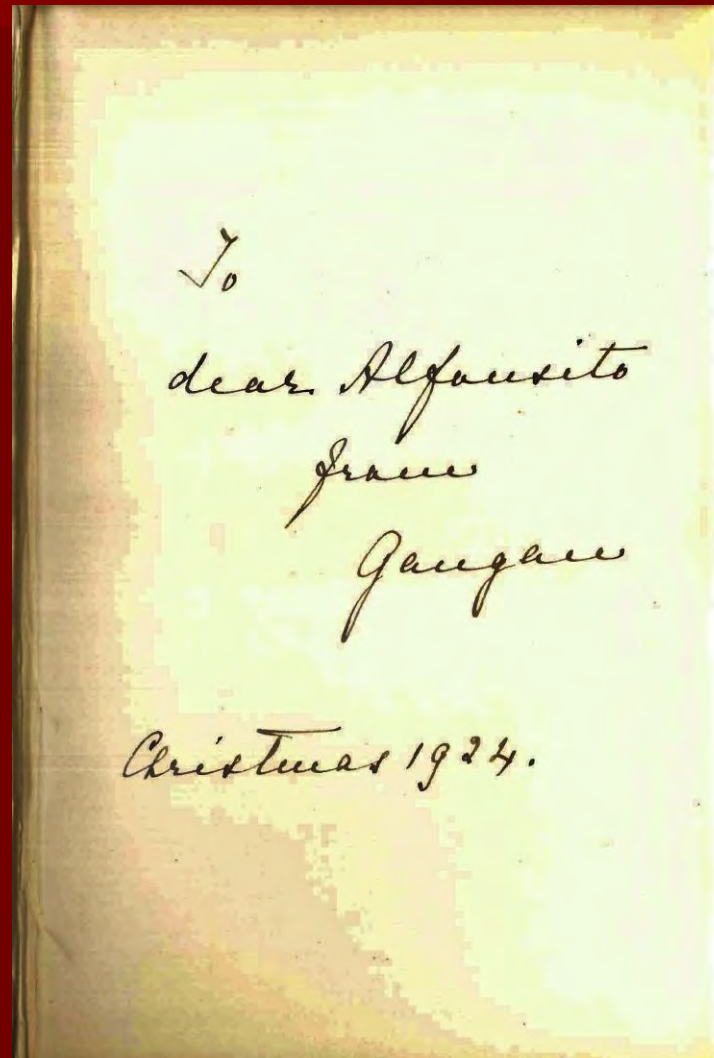 To
dear Alfonsito
from
Gangan
Christmas 1924.